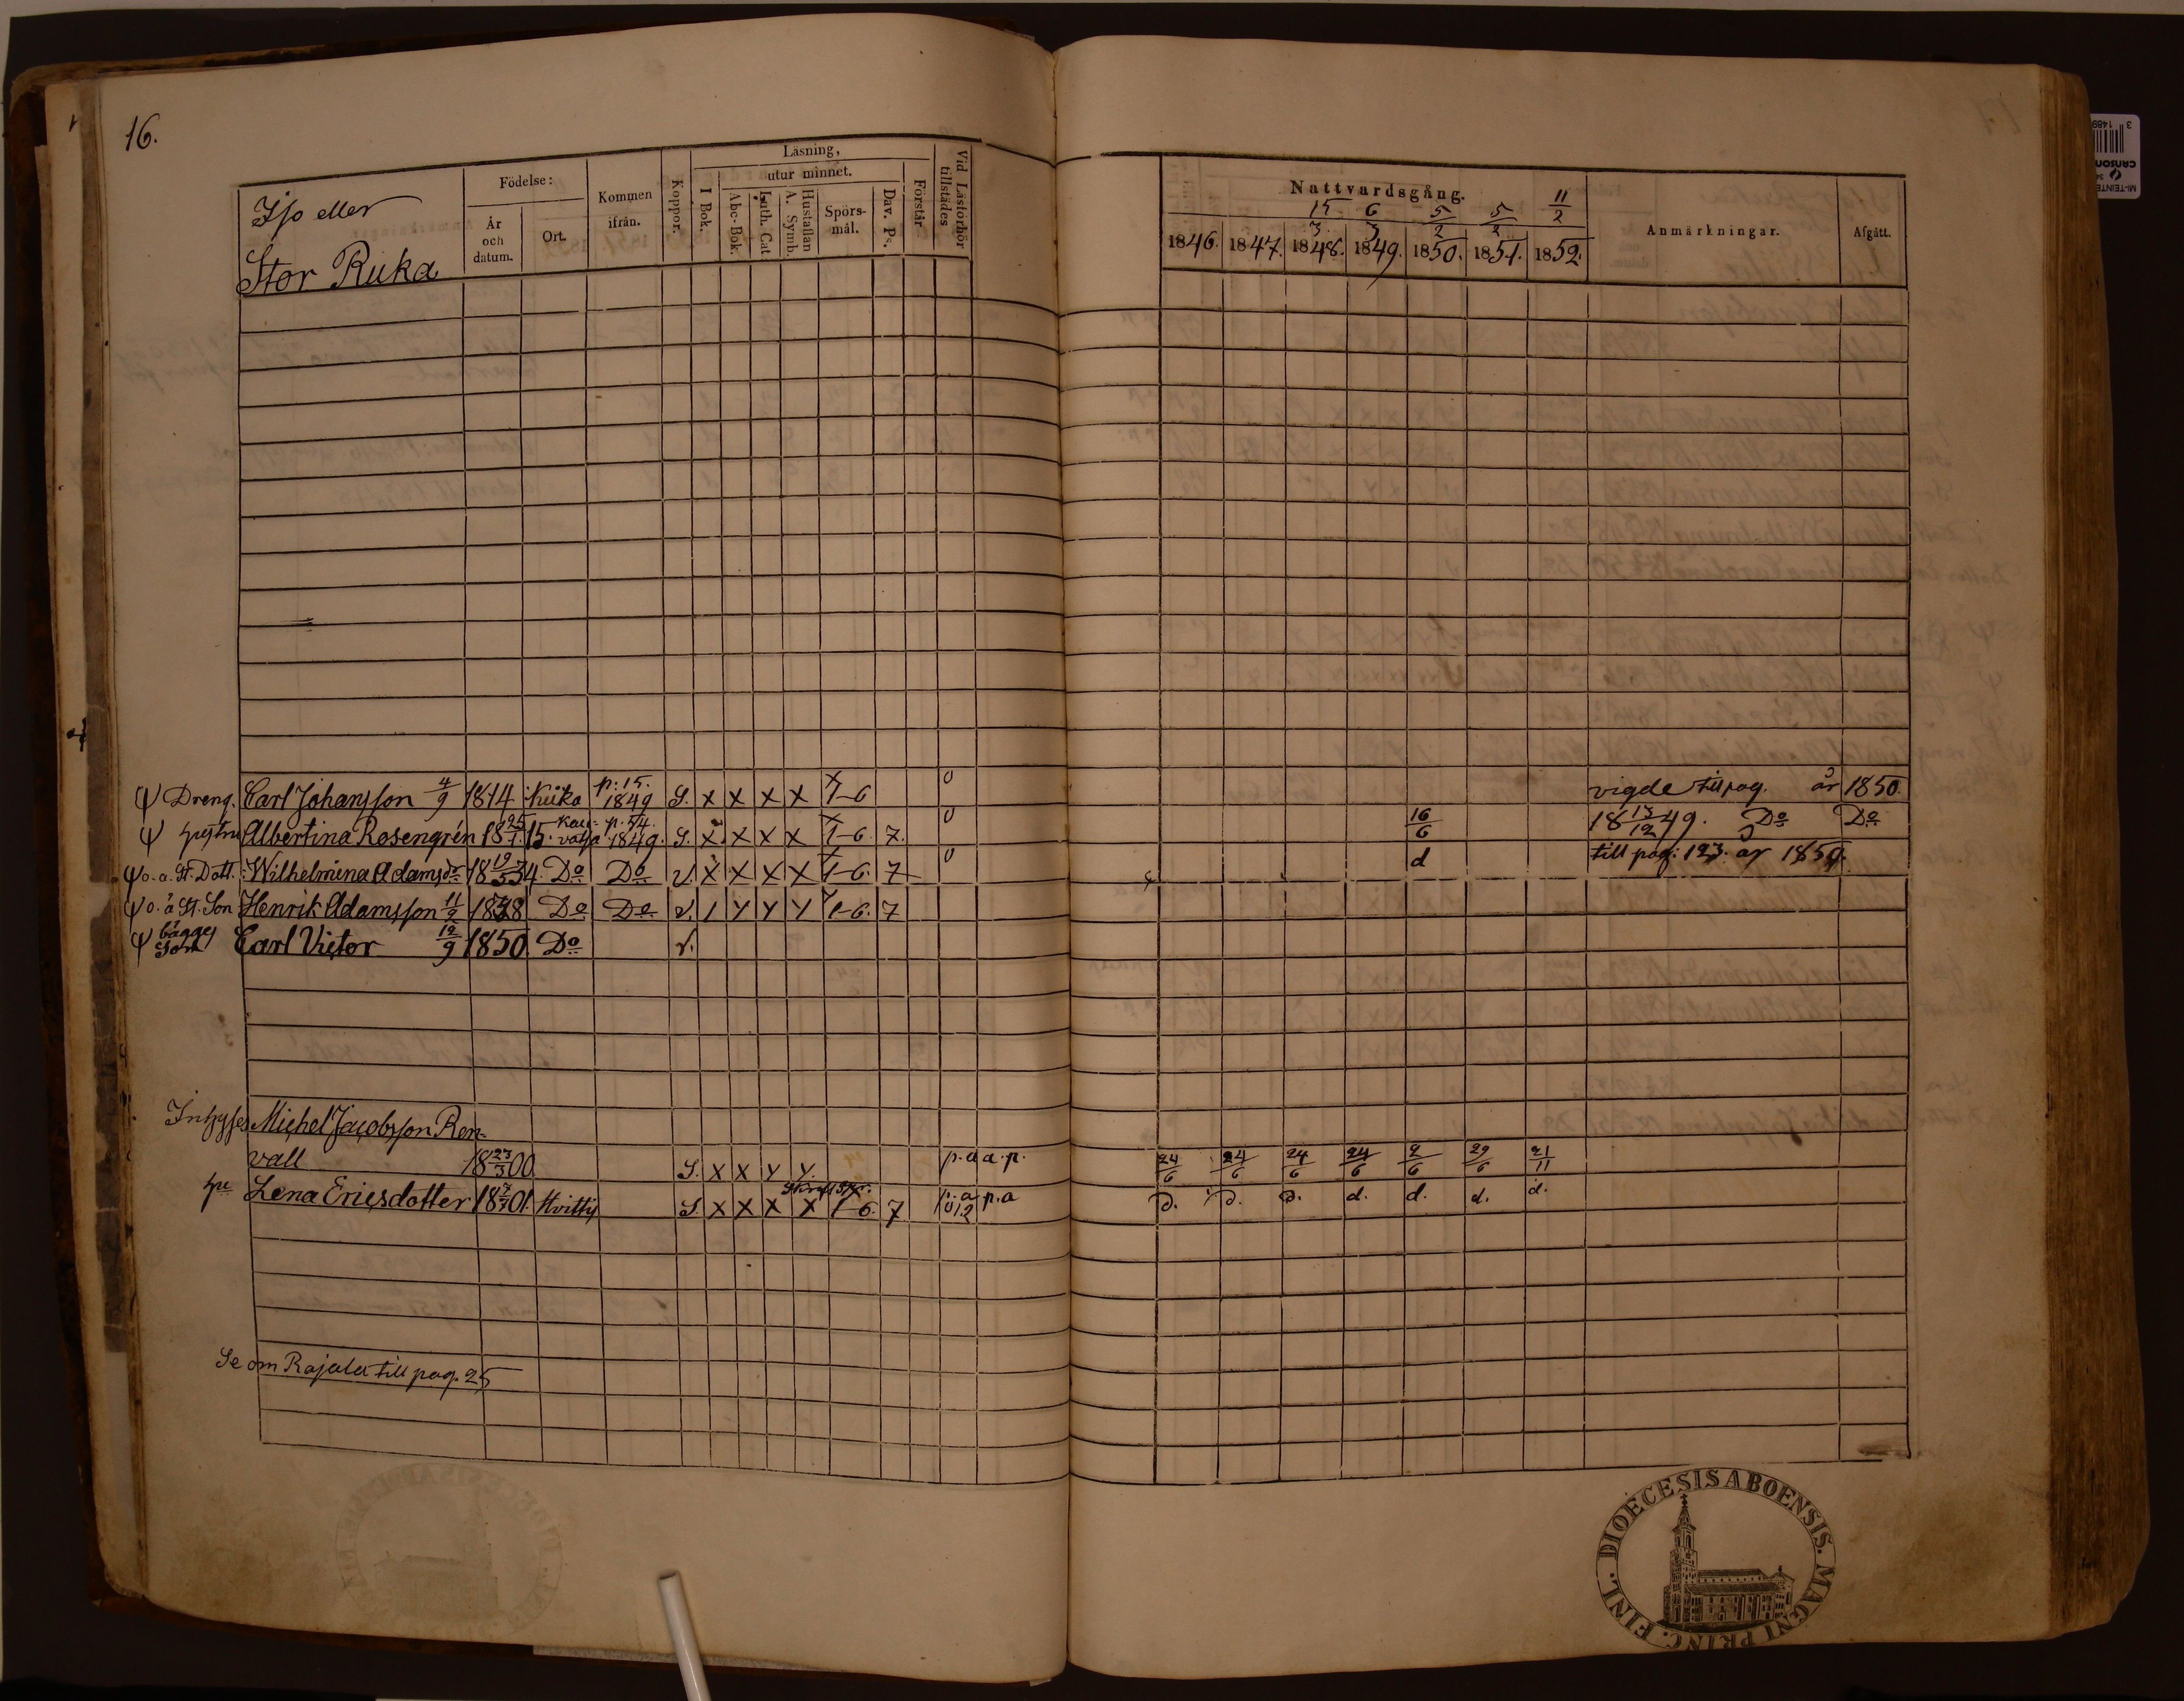 16.
Iso eller
Stor Ruka
Födelse:
År och datum.
Ort.
Kommen ifrån.
Koppor.
Läsning,
I Bok.
utur minnet.
Abc-Bok.
Luth. Cat
Hustaflan A. Symb.
Spörs-mål.
Dav. Ps.
Förstår.
Vid Läsförhör tillstädes
Nattvardsgång.
15/3 6/3 5/2 5/2 11/2
1846. 1847. 1848. 1849. 1850. 1851. 1852.
Anmärkningar.
Afgått.
Dreng. Carl Johansson 4/9 1814 Kuka p. 15. 1849 S. x x x x 1-6 0 vigde till pag. år 1850.
hustru Albertina Rosengrén 18 25/1 15. p. 54. 1849. S. x x x x 1-6. 7. 0 16/6 18 13/12 49. Do Do
o. ä. St. Dott. Wilhelmina Adamsdr 18 19/5 34. Do Do v. x x x x 1-6. 7 0 d till pag: 123. år 1850.
o. ä St. Son Henrik Adamsson 11/2 1838 Do Do v. 1 y y y 1-6. 7
bägges Son Carl Victor 12/9 1850 Do v.
Inhyses Michel Jacobsson Ren-
vall 18 23/3 00 S. x x y y p. a a. p. 24/6 24/6 24/6 24/6 2/6 29/6 21/11
hu Lena Ericsdotter 18 7/7 01. Hvittis S. x x x x 1-6. 7 p. a p. a d. d. d. d. d. d. d.
Se om Rajala till pag. 25
DIOECESIS ABOENSIS. MAGNI PRINC. FINL.